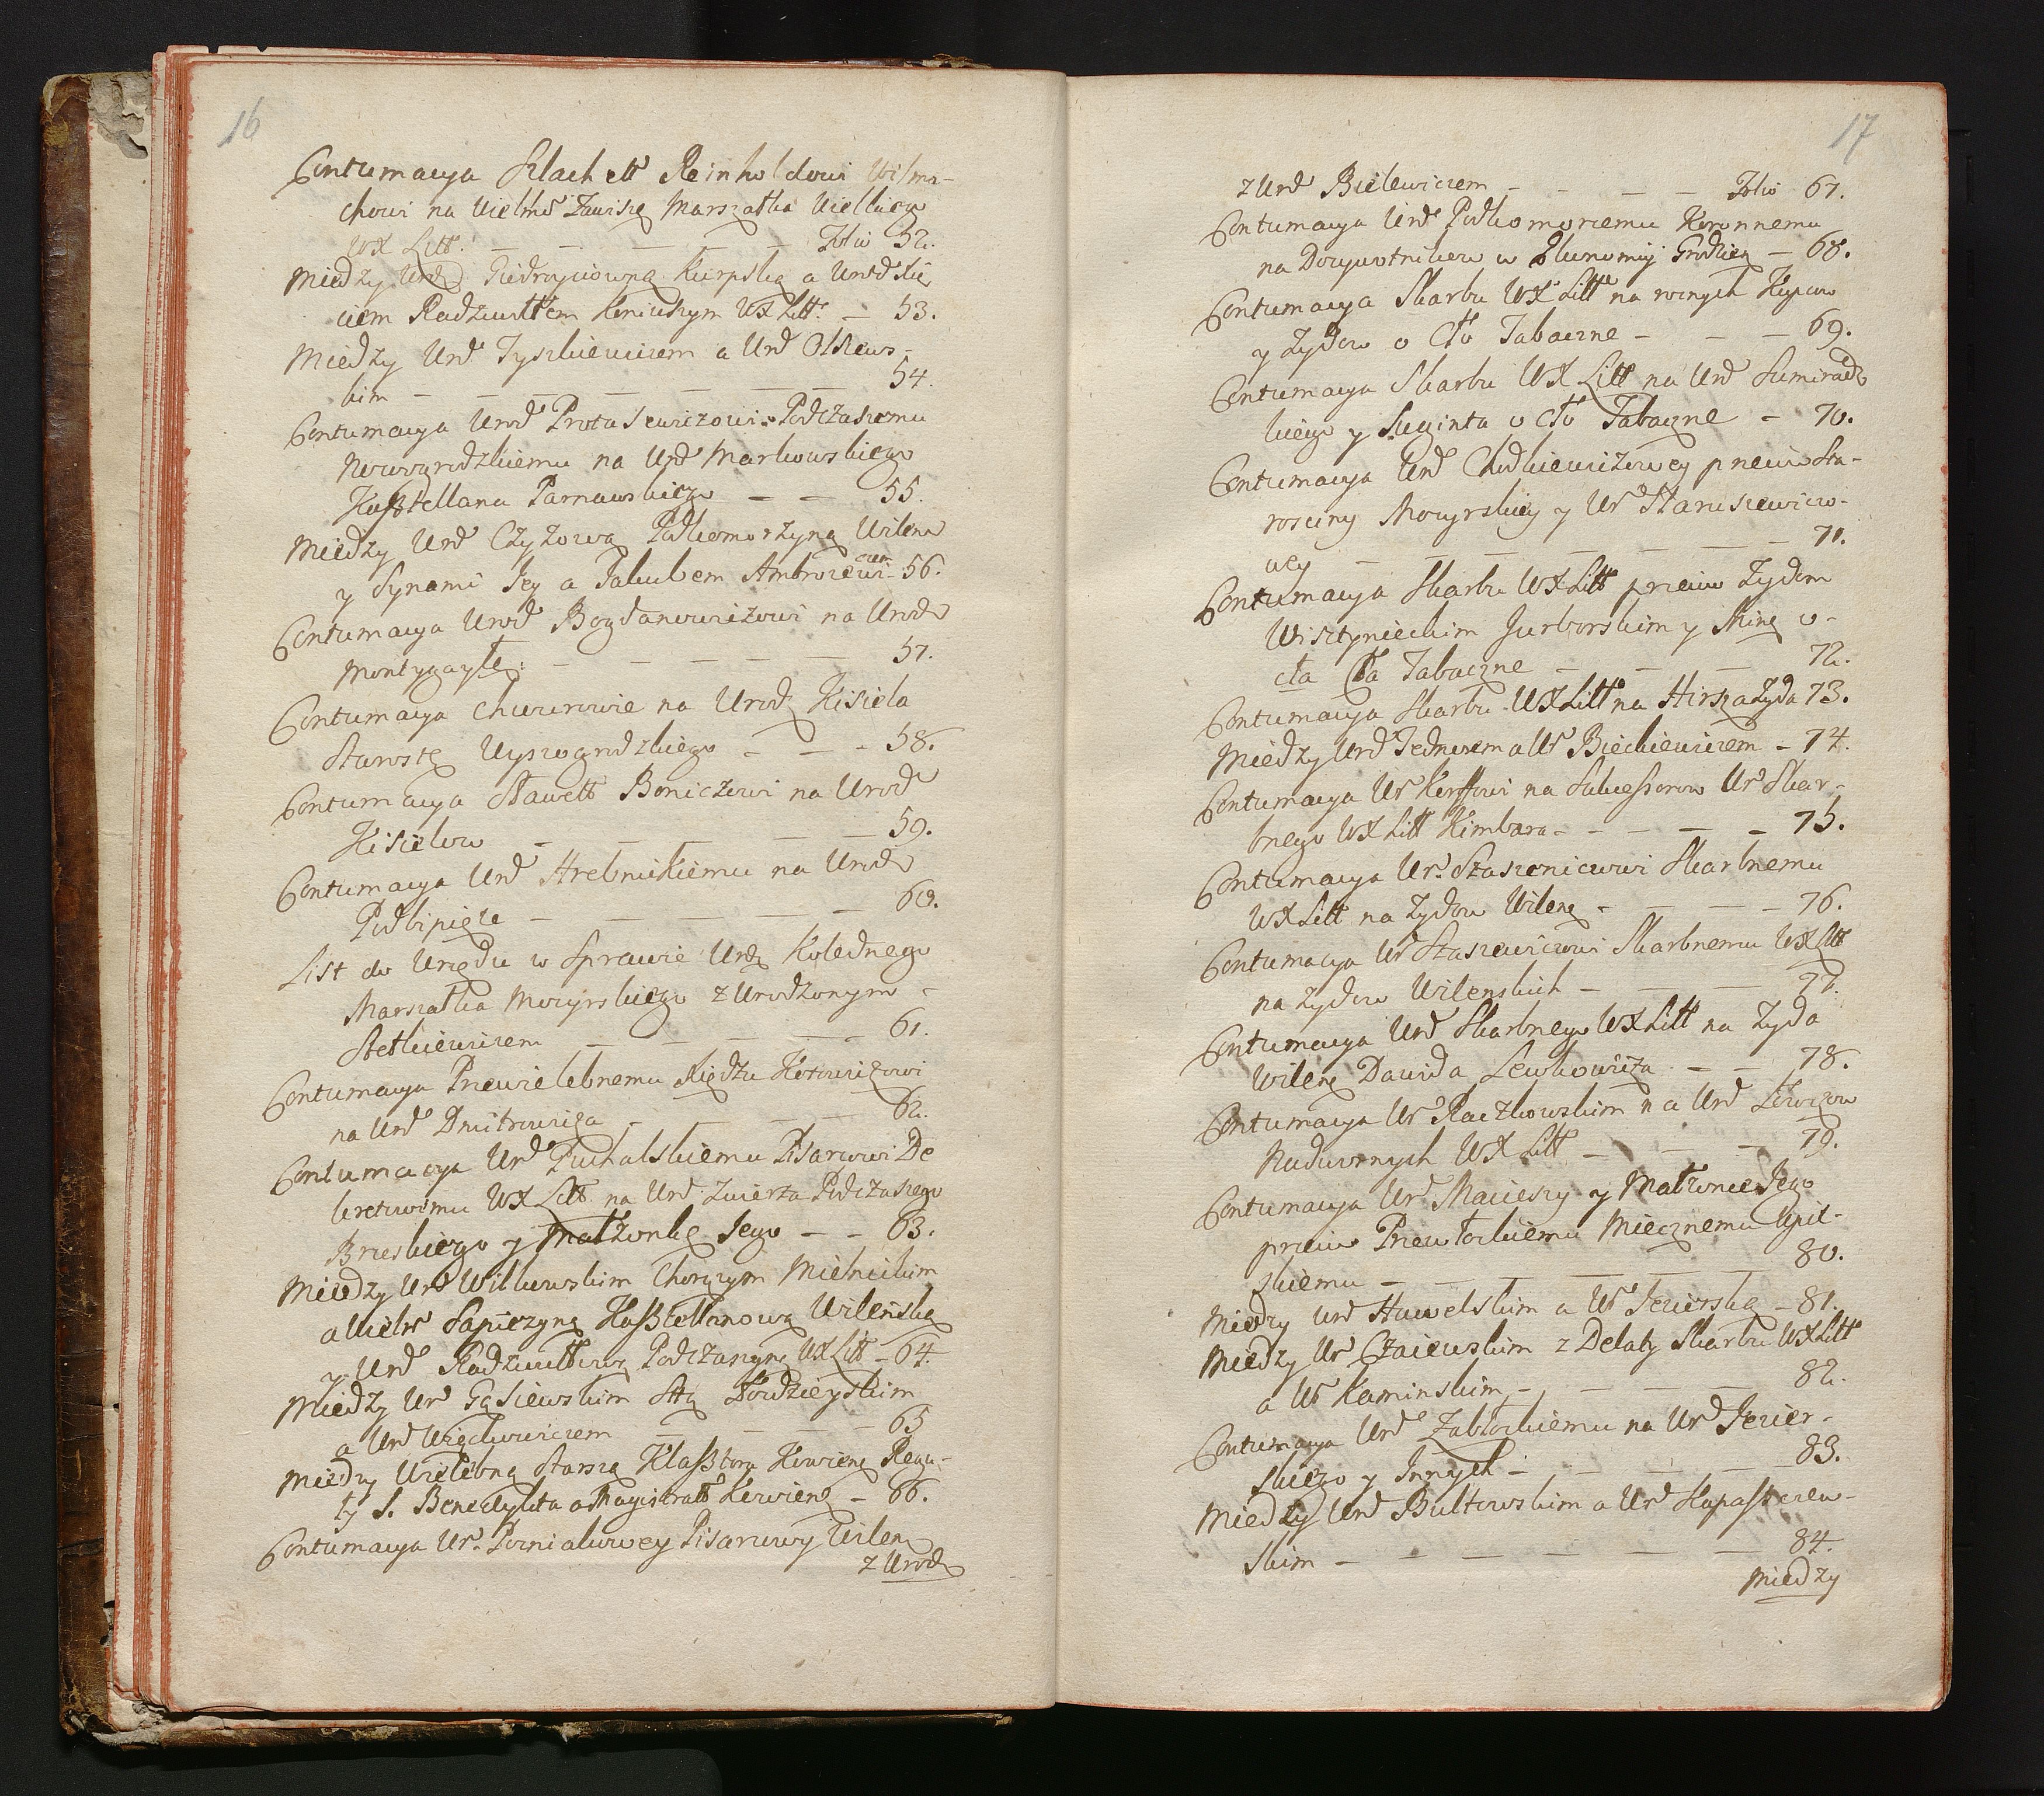 16
Contumacya Szlachett Reinholdowi Wisma-
chowi na Wielmo Zawiszę Marszałka Wielkiego
WX Litt. — — — — — Folio 52.
Miedzy Urod Giedroyciowną Kurpską a Urod Xię
ciem Radziwiłłem Koniuszym WX Litt. — 53.
Miedzy Urod Tyszkiewiczem a Urod Olszews-
kim — — — — — — 54.
Contumacya Urod Protasewiczowi Podczaszemu
Nowogrodzkiemu na Urod Markowskiego
Kasztellana Parnawskiego — — 55.
Miedzy Urod Czyżową Podkomorzyną Wileń
y Synami Jey a Jakubem Ambrozewi-czem 56.
Contumacya Urod Bogdanowiczowi na Urod
Montygayłę: — — — — — 57.
Contumacya Chwurowie na Urod Kisiela
Starostę Wyszogrodzkiego — — - 58.
Contumacya Sławett Boniczowi na Urod
Kisielow — — — — — 59.
Contumacya Urod Hrebnickiemu na Urod
Podbipięte — — — — — 60.
List do Urzędu w Sprawie Urod Kolednego
Marszałka Mozyrskiego z Urodzonym -
Stetkiewiczem — — — — — 61.
Contumacya Przewielebnemu Xiędzu Kotowiczowi
na Urod Dmitrowicza — — — 62.
Contumacya Urod Puchalskiemu Pisarzowi De
kretowemu WX Litt na Urod Zwierza Podczaszego
Brzeskiego y Małżonkę Jego — - 63.
Miedzy Urod Wilkowskim Chorązym Mielnickim
a Wielm Sapieżyną Kasztellanową Wileńską
y Urod Radziwiłłową Podczaszyną WX Litt - 64.
Miedzy Ur Gąsiewskim Sttą Łozdzieyskim
a Urod Więckowiczem — — — — 65
Miedzy Wielebną Starszą Klasztoru Kowieńs Regu-
ły S. Benedykta a Magistratt Kowieńs — 66.
Contumacya Ur. Pozniakowey Pisarzowy Wileń
z Urod
17
z Urod Bielewiczem - - — — Folio 67.
Contumacya Urod Podkomorzemu Koronnemu
na Dozywotnikow w Ekonomij Grodzień — 68.
Contumacya Skarbu WX Litt na roznych Kupcow
y Zydow o Cło Tabaczne - - — 69.
Contumacya Skarbu WX Litt na Urod Sumirodz
kiego y Suginta o cło Tabaczne - 70.
Contumacya Urod Chodkiewiczowey przeciw Sta-
rosciny Mozyrskiey y Ur Staniszewiczo-
wey — — — — — — — 71.
Contumacya Skarbu WX Litt przeciw Zydom
Wisztynieckim Jurborskim y Mińs o-
cła Cła Tabaczne — — — 72.
Contumacya Skarbu WX Litt na Hirsza Zyda 73.
Miedzy Urod Jednorem a Ur Bieckiewiczem - 74.
Contumacya Ur Kerffowi na Sukcessorow Ur Skar-
bnego WX Litt Kimbara - - — — - 75.
Contumacya Ur. Staszenicowi Skarbnemu
WX Litt na Zydow Wileńs - — — 76.
Contumacya Ur Staszewiczowi Skarbnemu WX Litt
na Zydow Wilenskich — — — 77.
Contumacya Urod Skarbnego WX Litt na Zyda
Wileńs Dawida Lewkowicza — — 78.
Contumacya Ur Raczkowskim na Urod Łowczow
Nadwornych WX Litt — - - — 79.
Contumacya Urod Macieszy y Małżonce Jego
przeciw Przewłockiemu Miecznemu Upit-
skiemu — — — — — — 80.
Miedzy Urod Hawelskim a Ur Jezierską — 81.
Miedzy Ur Czaiewskim z Delaty Skarbu WX Litt
a Ur Kaminskim - — — — 82.
Contumacya Urod Zabłockiemu na Urod Jezier-
skiego y Innych - — — — — 83.
Miedzy Urod Bułtowskim a Urod Hupaszczew-
skim — — — — — — — 84.
Miedzy